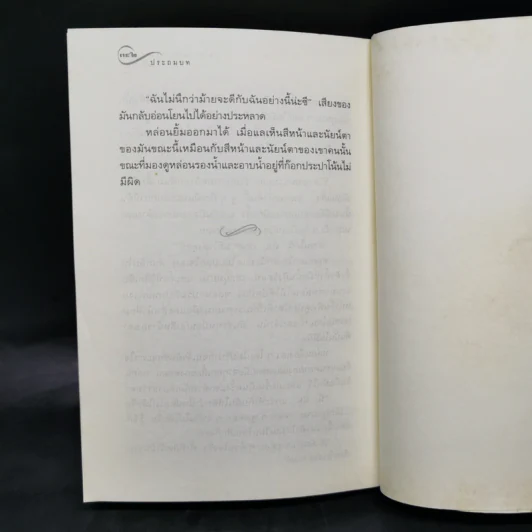 ประถมบท
"ฉันไม่นึกว่าม้ายจะดีกับฉันอย่างนี้น่ะซี" เสียงของ
มันกลับอ่อนโยนไปได้อย่างประหลาด
หล่อนยิ้มออกมาได้ เมื่อแลเห็นสีหน้าและนัยน์ตา
ของมันขณะนี้เหมือนกับสีหน้าและนัยน์ตาของเขาคนนั้น
ขณะที่มองดูหล่อนรองน้ำและอาบน้ำอยู่ที่ก๊อกประปาโน้นไม่
มีผิด